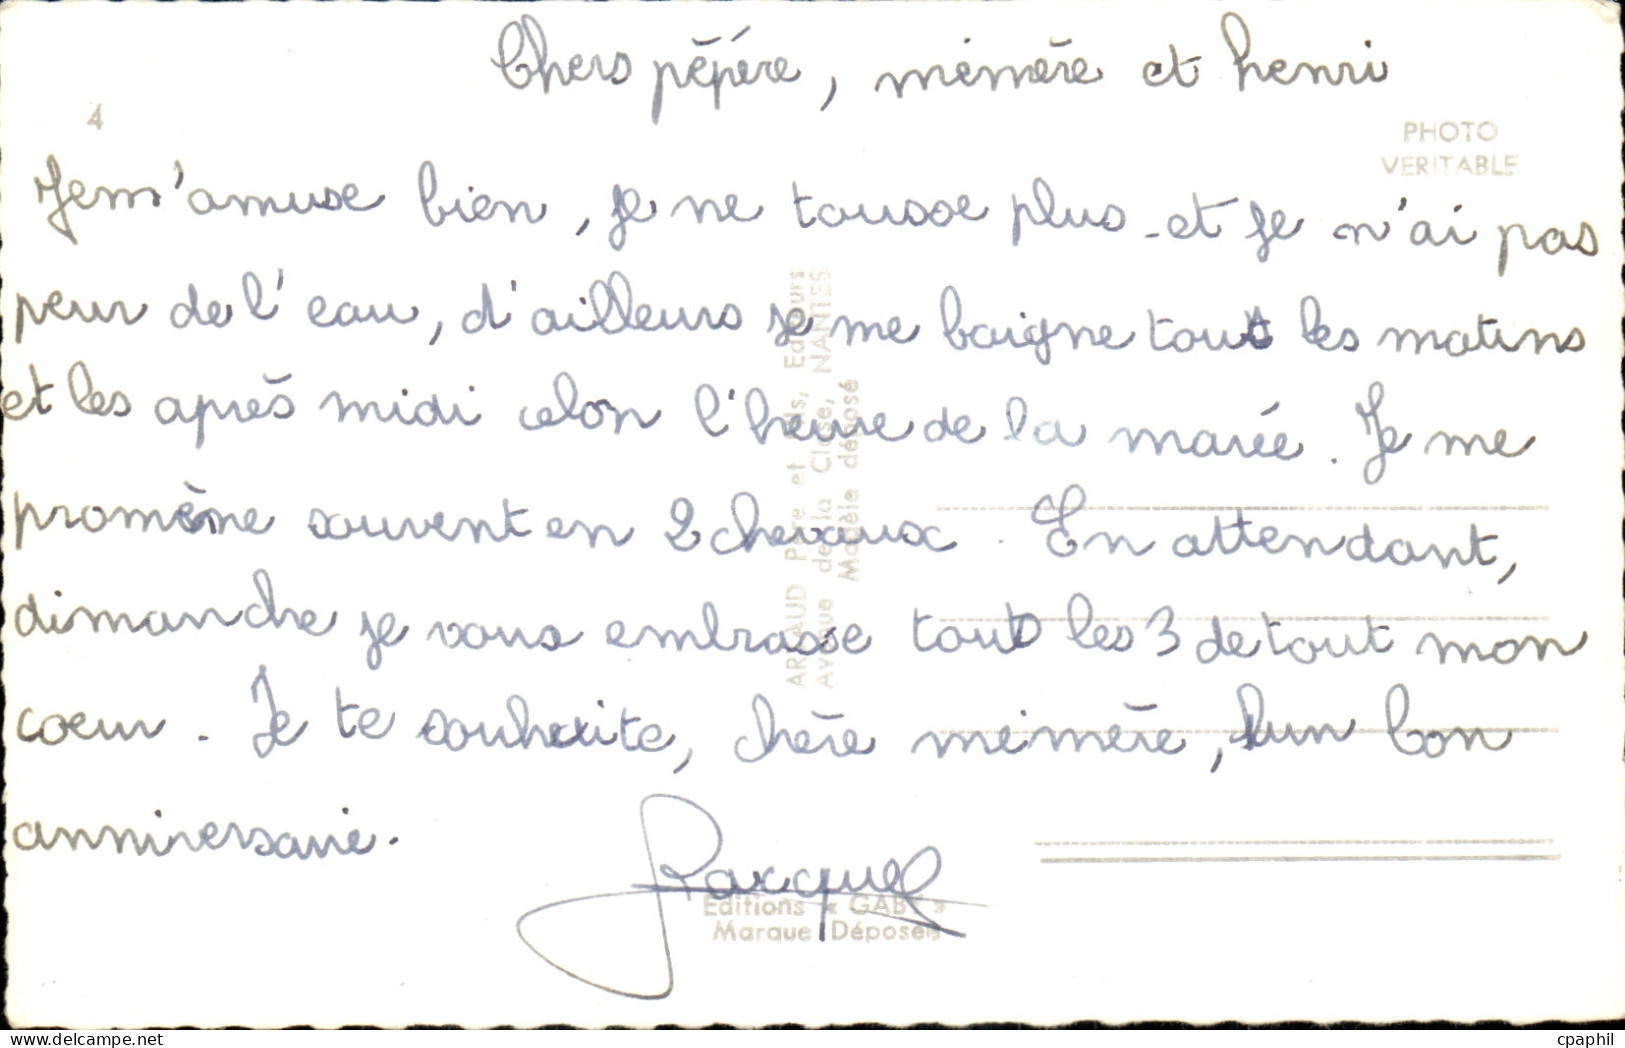 Chers pépére, mémère et henri
4
PHOTO
VERITABLE
Je m'amuse bien, je ne tousse plus et je n'ai pas
peur de l'eau, d'ailleurs je me baigne tout les matins
et les après midi celon l'heure de la marée. Je me
promène souvent en 2 chevaux. En attendant,
dimanche je vous embrasse tout les 3 de tout mon
coeur. Je te souhaite, chère mémère, un bon
anniversaire.
ARTAUD Père et Fils, Editeurs
Avenue de la Close, NANTES
Modèle déposé
Editions « GABY »
Marque Déposée
cpaphil